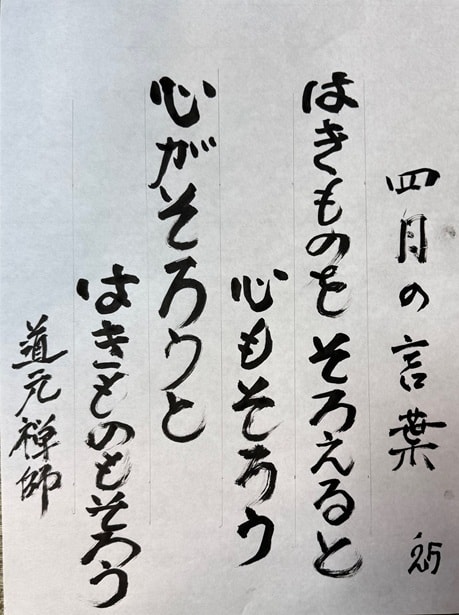 四月の言葉 25
はきものをそろえると
心もそろう
心がそろうと
はきものもそろう
道元禅師